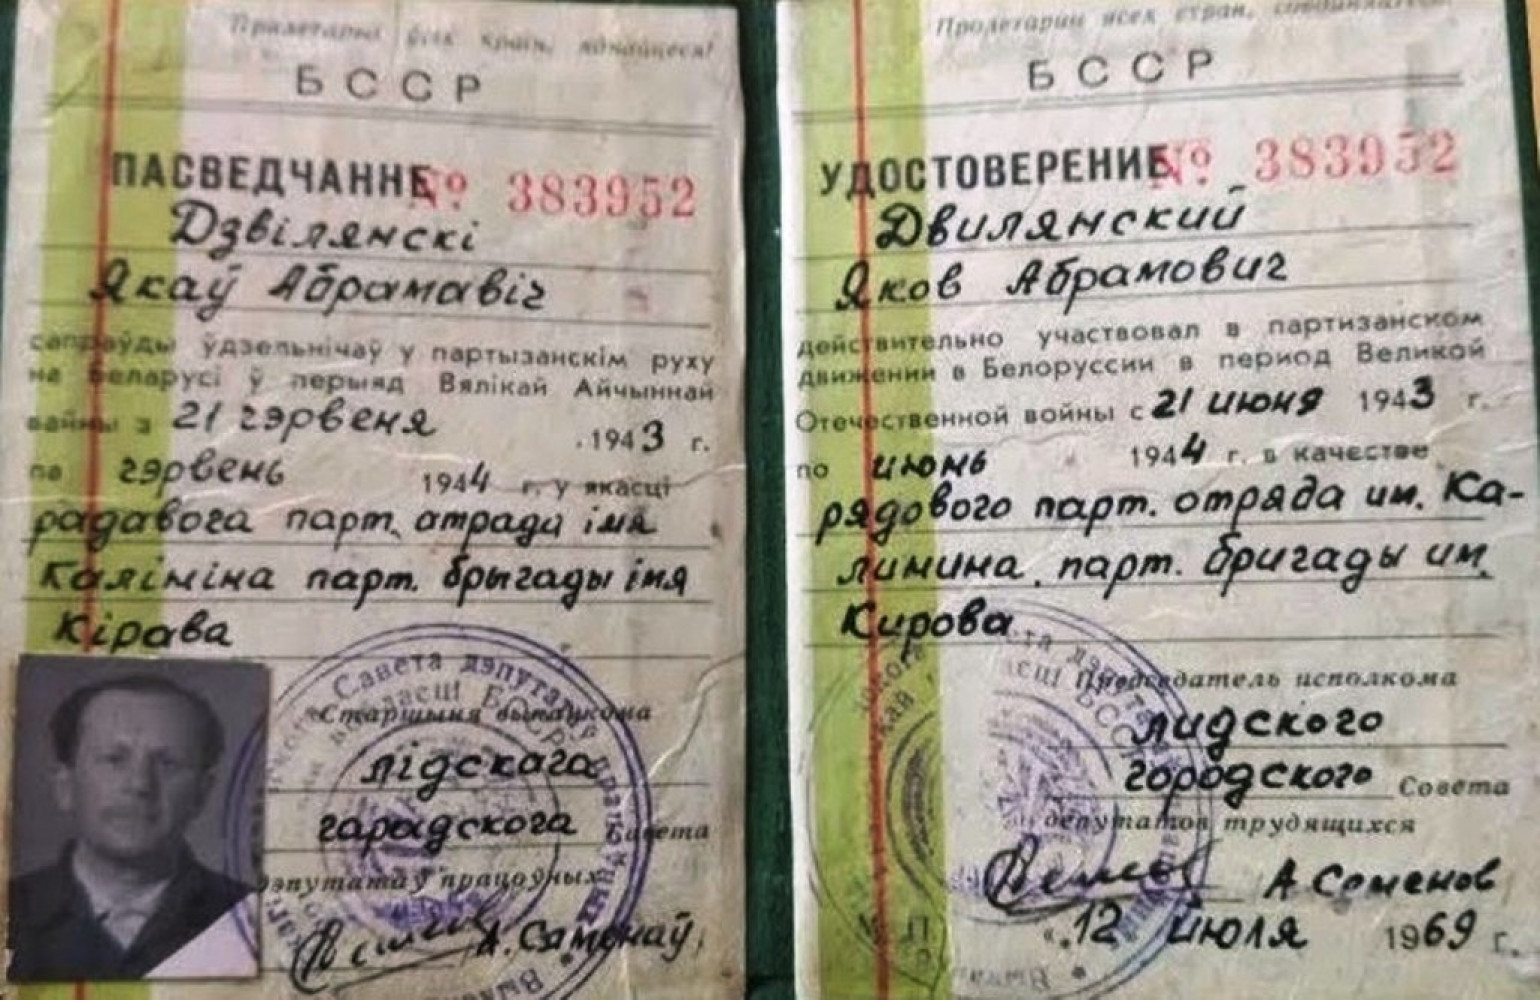 Пралетарыі ўсіх краін, яднайцеся!
БССР
ПАСВЕДЧАННЕ № 383952
Дзвілянскі
Якаў Абрамавіч
сапраўды ўдзельнічаў у партызанскім руху
на Беларусі ў перыяд Вялікай Айчыннай
вайны з 21 чэрвеня 1943 г.
па чэрвень 1944 г. у якасці
радавога парт. атрада імя
Калініна парт. брыгады імя
Кірава
Старшыня выканкома
лідскага
гарадскога Савета
дэпутатаў працоўных
А. Самёнаў
Савета дэпутатаў працоўных
вобласці БССР
Пролетарии всех стран, соединяйтесь!
БССР
УДОСТОВЕРЕНИЕ № 383952
Двилянский
Яков Абрамович
действительно участвовал в партизанском
движении в Белоруссии в период Великой
Отечественной войны с 21 июня 1943 г.
по июнь 1944 г. в качестве
рядового парт. отряда им. Ка-
линина, парт. бригады им.
Кирова
Председатель исполкома
лидского
городского Совета
депутатов трудящихся
А. Семенов
"12 июля 1969 г.